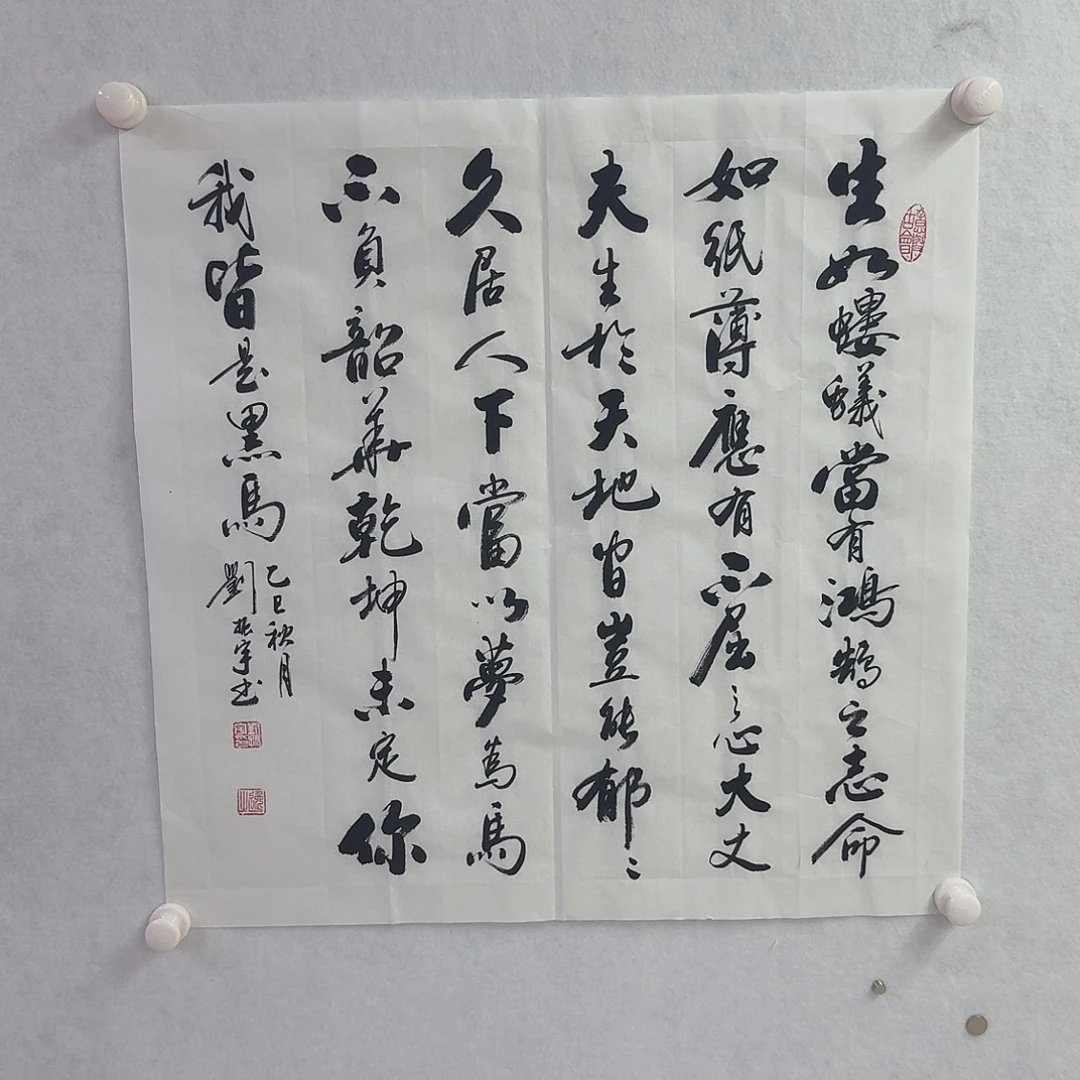 生如螻蟻當有鴻鵠之志命
如紙薄應有不屈之心大丈
夫生於天地皆豈能郁々
久居人下當以夢為馬
不負韶華乾坤未定你
我皆是黑馬
乙巳秋月
劉振宇书